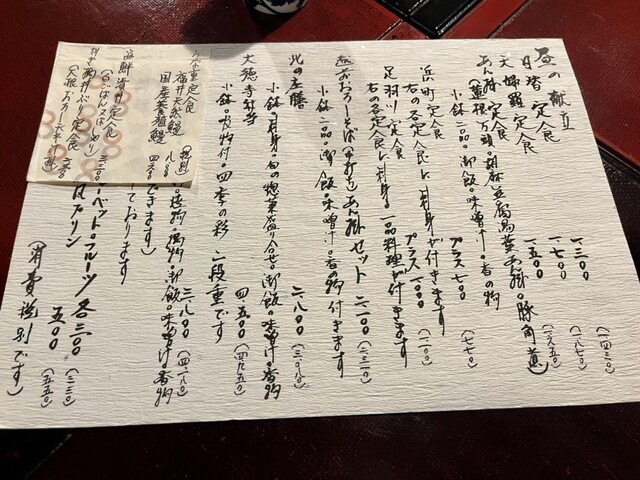 昼の献立
日替定食 一・三〇〇 (一・四三〇)
天婦羅定食 一・七〇〇 (一・八七〇)
あん掛定食 一・五〇〇 (一・六五〇)
(蓮根万頭・胡麻豆腐湯葉あん掛・豚角煮)
小鉢二品・御飯・味噌汁・香の物
浜町定食 プラス七〇〇 (七七〇)
右の各定食に刺身が付きます
足羽川定食 プラス一・〇〇〇 (一・一〇〇)
右の各定食に刺身、一品料理が付きます
越前おろしそば(手打ち)あん掛セット 二・一〇〇 (二・三一〇)
小鉢一品・御飯・味噌汁・香の物付きます
北の庄膳 二・八〇〇 (三・〇八〇)
小鉢・刺身・旬の惣菜盛り合せ・御飯・味噌汁・香物
大徳寺弁当 四・五〇〇 (四・九五〇)
小鉢・お吸物付 四季の彩 二段重です
三・八〇〇 (四・一八〇)
焼物・揚物・御飯・味噌汁・香物
ております
ベット・フルーツ 各三〇〇 (三三〇)
プリン 五〇〇 (五五〇)
(消費税別です)
うな重定食
福井天然鰻 (特別)
国産養殖鰻
海鮮丼定食